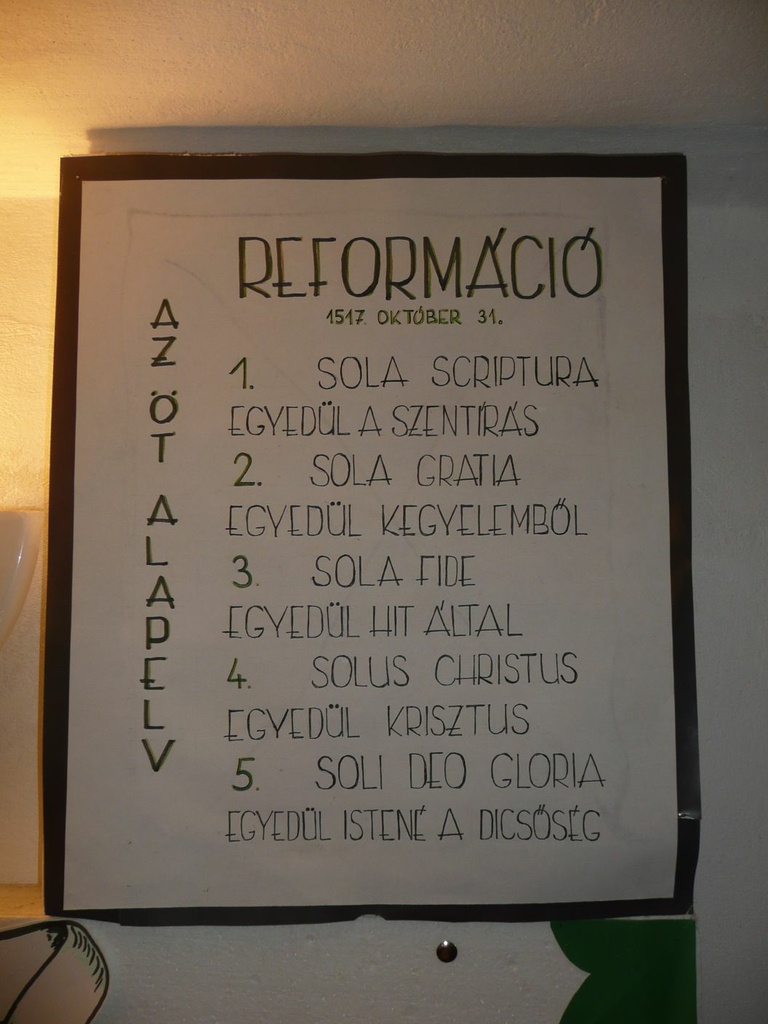 REFORMÁCIÓ
1517. OKTÓBER 31.
AZ ÖT ALAPELV
1. SOLA SCRIPTURA
EGYEDÜL A SZENTÍRÁS
2. SOLA GRATIA
EGYEDÜL KEGYELEMBŐL
3. SOLA FIDE
EGYEDÜL HIT ÁLTAL
4. SOLUS CHRISTUS
EGYEDÜL KRISZTUS
5. SOLI DEO GLORIA
EGYEDÜL ISTENÉ A DICSŐSÉG